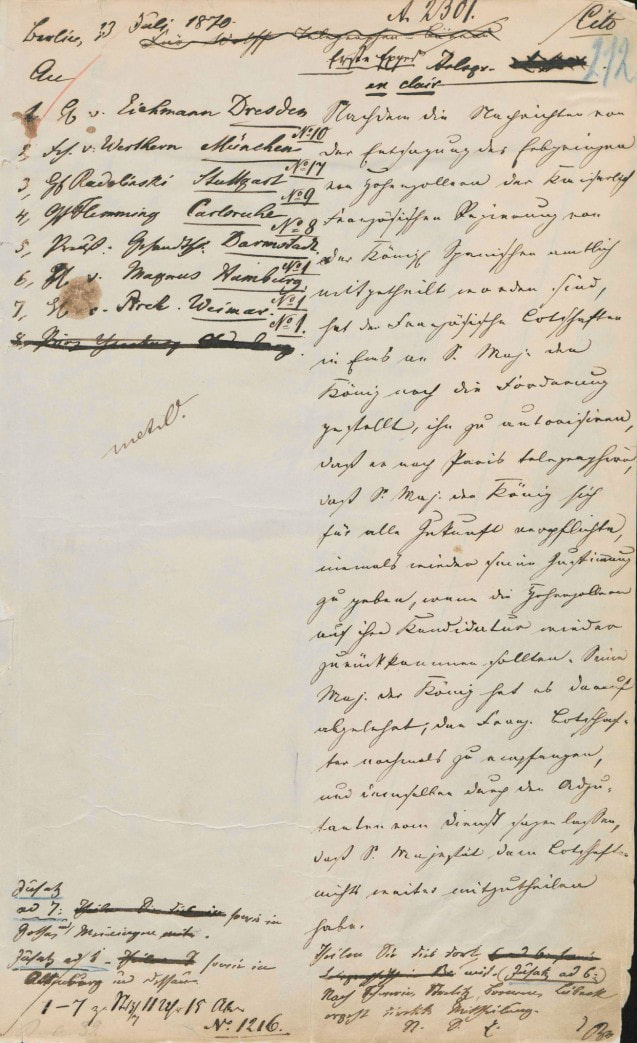 A. 2301.
Cito
Berlin, 13 Juli 1870.
212
Telegr.
en clair
An
1, H. v. Eichmann Dresden
No 10
2, Frh. v. Werthern München
No 17
3, Gf Radolinski Stuttgart
No 9
4, Gf Flemming Carlsruhe
No 8
5, Preuß. Gesandtsch. Darmstadt
No 1
6, H. v. Magnus Hamburg
No 1
7, H. v. Weimar.
No 1.
8,
Nachdem die Nachrichten von
der Entsagung des Erbprinzen
von Hohenzollern der Kaiserlich
Französischen Regierung von
der Königl. Spanischen amtlich
mitgetheilt worden sind,
hat der Französische Botschafter
in Ems an S. Maj. den
König noch die Forderung
gestellt, ihn zu autorisiren,
daß er nach Paris telegraphire,
daß S. Maj. der König sich
für alle Zukunft verpflichte,
niemals wieder seine Zustimmung
zu geben, wenn die Hohenzollern
auf ihre Kandidatur wieder
zurückkommen sollten. Seine
Maj. der König hat es darauf
abgelehnt, den Franz. Botschaf-
ter nochmals zu empfangen,
und demselben durch den Adju-
tanten vom Dienst sagen lassen,
daß S. Majestät dem Botschafter
nichts weiter mitzutheilen
habe.
Theilen Sie dies dort
mit. (Zusatz ad 6:
Nach Lübeck
ergeht direkte Mittheilung.
N. d. E.
Zusatz
ad 7: sowie in
Gotha Meiningen
Zusatz ad 1 sowie in
Altenburg und Dessau
1–7 11 Uhr 15
No 1216.